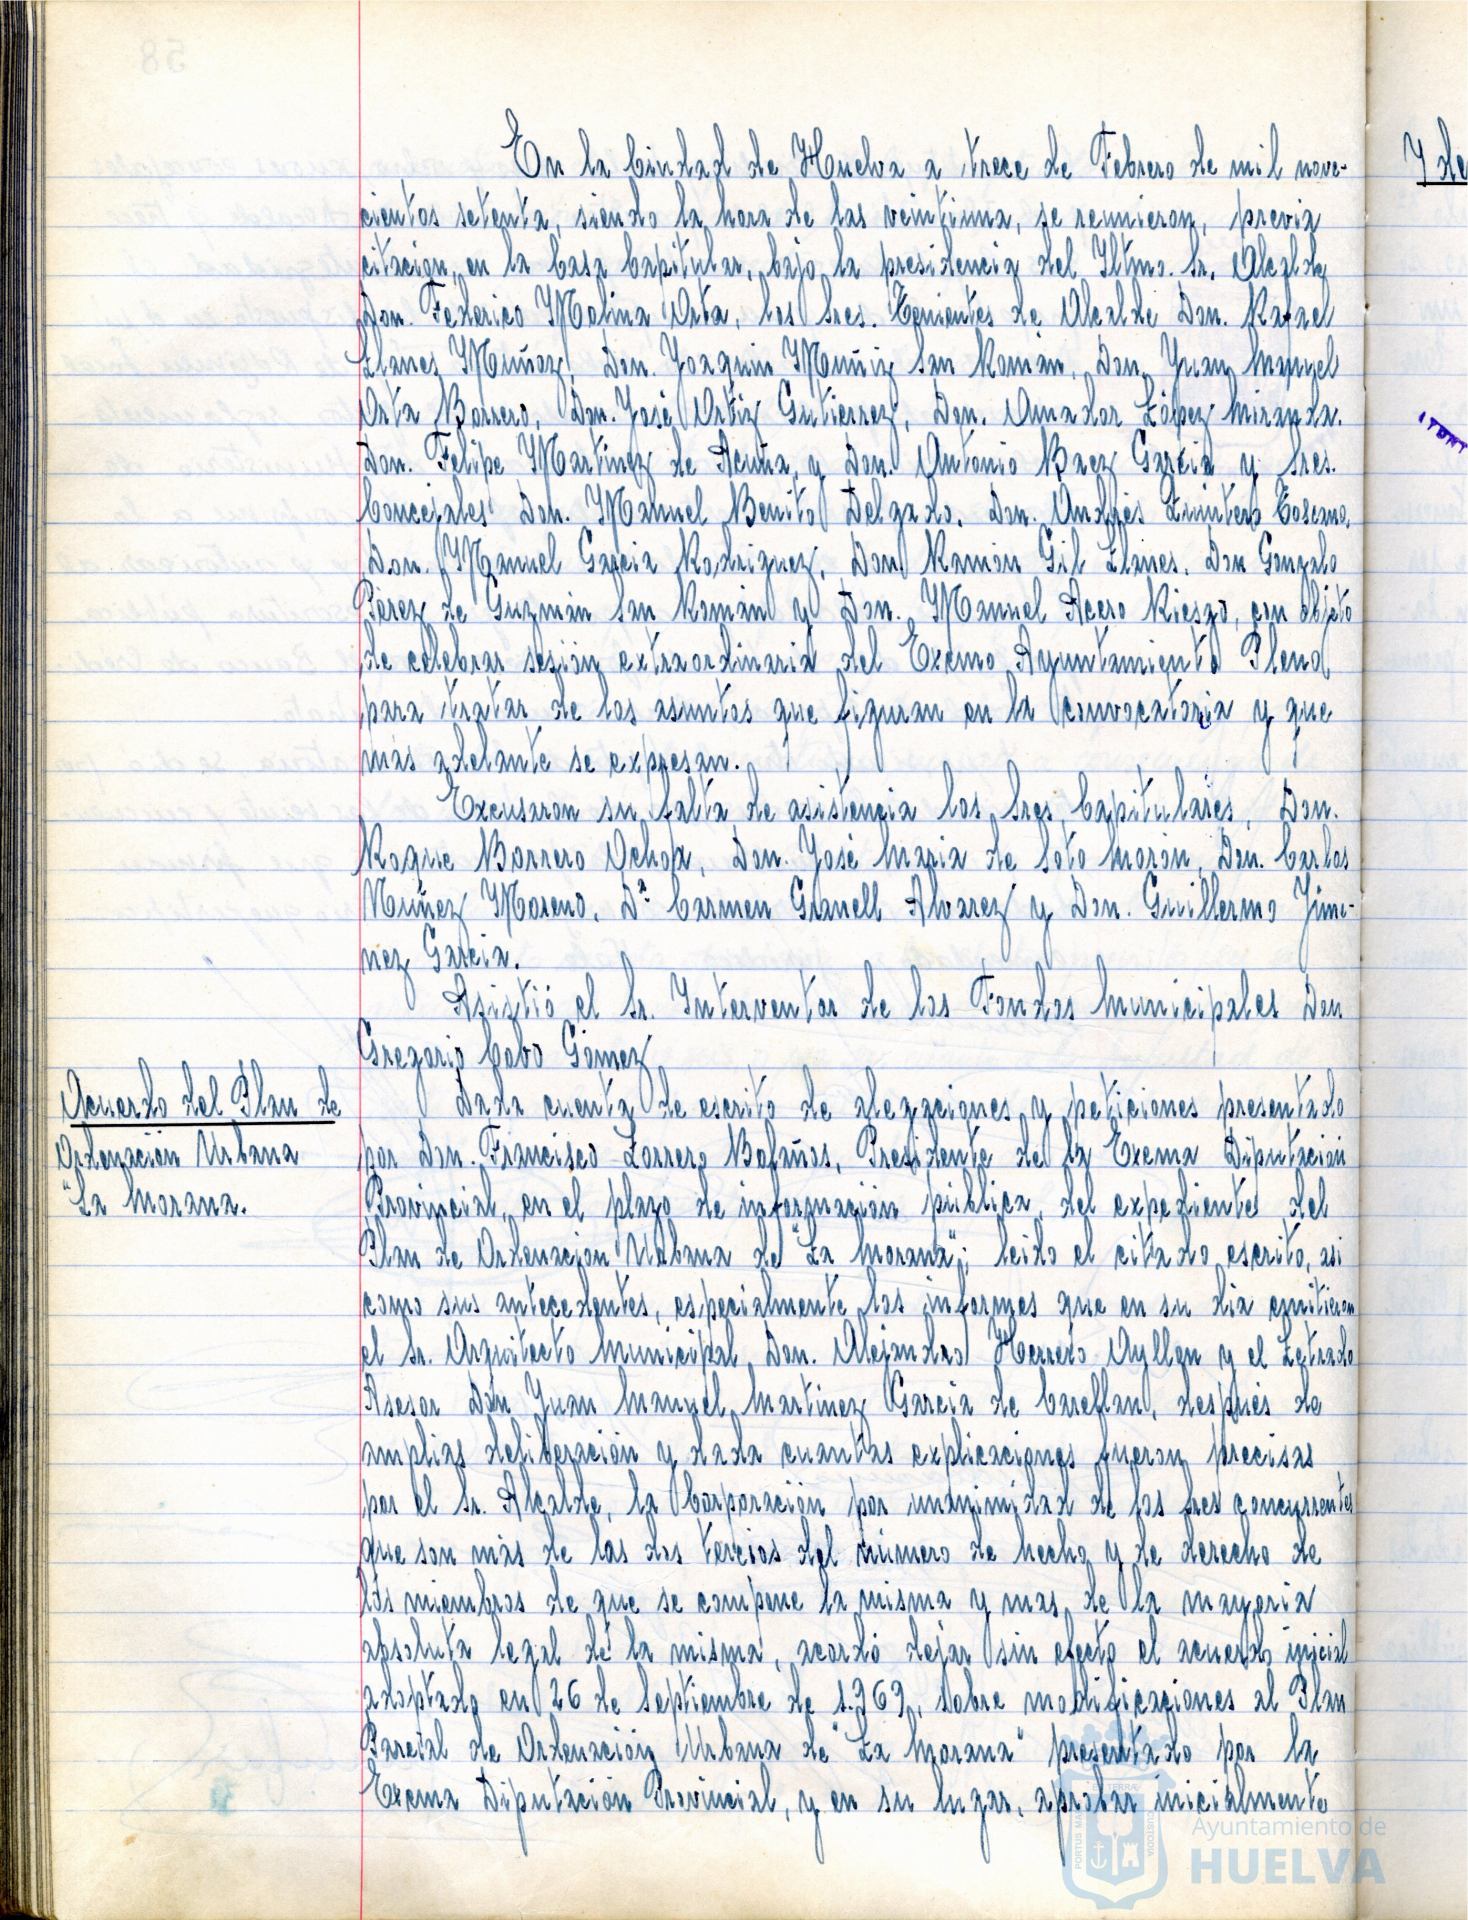 En la Ciudad de Huelva a trece de Febrero de mil nove-
cientos setenta, siendo la hora de las veintiuna, se reunieron, previa
citación, en la Casa Capitular, bajo la presidencia del Iltmo. Sr. Alcalde
Don. Federico Molina Orta, los Sres. Tenientes de Alcalde Don. Rafael
Llanes Muñoz, Don. Joaquin Muñiz San Román, Don. Juan Manuel
Orta Borrero, Don. José Ortiz Gutierrez, Don. Amador López Miranda.
Don. Felipe Martinez de Acuña, y Don. Antonio Baez Garcia y Sres.
Concejales Don. Manuel Benito Delgado, Don. Andrés Quintero Toscano,
Don. Manuel Garcia Rodriguez, Don Ramón Gil Llanes, Don Gonzalo
Pérez de Guzmán San Román y Don. Manuel Acero Riesgo, con objeto
de celebrar sesión extraordinaria del Excmo Ayuntamiento Pleno,
para tratar de los asuntos que figuran en la convocatoria y que
más adelante se expresan.
Excusaron su falta de asistencia los Sres Capitulares, Don.
Roque Borrero Ochoa, Don. José Maria de Soto Morón, Don. Carlos
Nuñez Moreno, Dª Carmen Granell Alvarez y Don. Guillermo Jime-
nez Garcia.
Asistió el Sr. Interventor de los Fondos Municipales Don
Gregorio Cabo Gómez
Acuerdo del Plan de
Ordenación Urbana
"La Morana.
Dada cuenta de escrito de alegaciones y peticiones presentado
por Don. Francisco Zorrero Bolaños, Presidente de la Excma Diputación
Provincial, en el plazo de información pública, del expediente del
Plan de Ordenación Urbana de "La Morana"; leido el citado escrito, asi
como sus antecedentes, especialmente los informes que en su dia emitieron
el Sr. Arquitecto Municipal, Don. Alejandro Herrero Ayllon y el Letrado
Asesor Don Juan Manuel Martinez Garcia de
después de
amplias deliberación y dada cuantas explicaciones fueron precisas
por el Sr. Alcalde, la Corporación por unanimidad de los Sres concurrentes
que son más de las dos tercios del número de hecho y de derecho de
los miembros de que se compone la misma y mas de la mayoria
absoluta legal de la misma, acordó dejar sin efecto el acuerdo inicial
adoptado en 26 de Septiembre de 1.969, sobre modificaciones al Plan
Parcial de Ordenación Urbana de "La Morana" presentado por la
Excma Diputación Provincial, y en su lugar, aprobar inicialmente
Y de
PORTUS MARIS ET TERRAE CUSTODIA
Ayuntamiento de
HUELVA